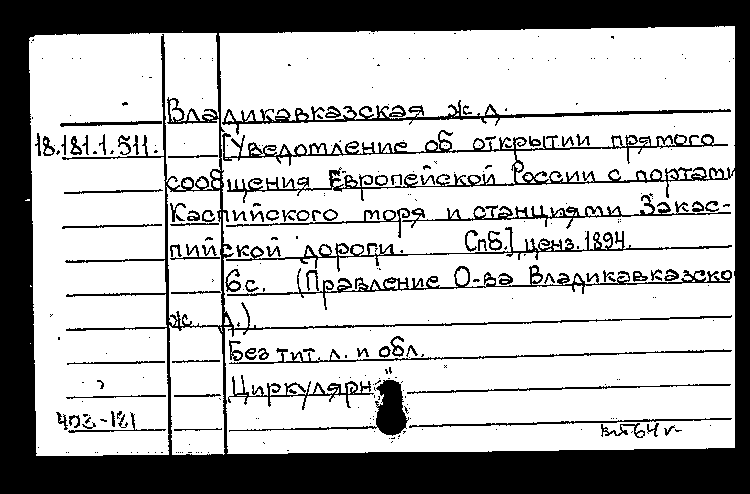 Владикавказская ж.д.
18.181.1.511. [Уведомление об открытии прямого
сообщения Европейской России с портами
Каспийского моря и станциями Закас-
пийской дороги. СпБ.], ценз. 1894.
6с. (Правление О-ва Владикавказско
ж. д.).
Без тит. л. и обл.
Циркулярн
402-181